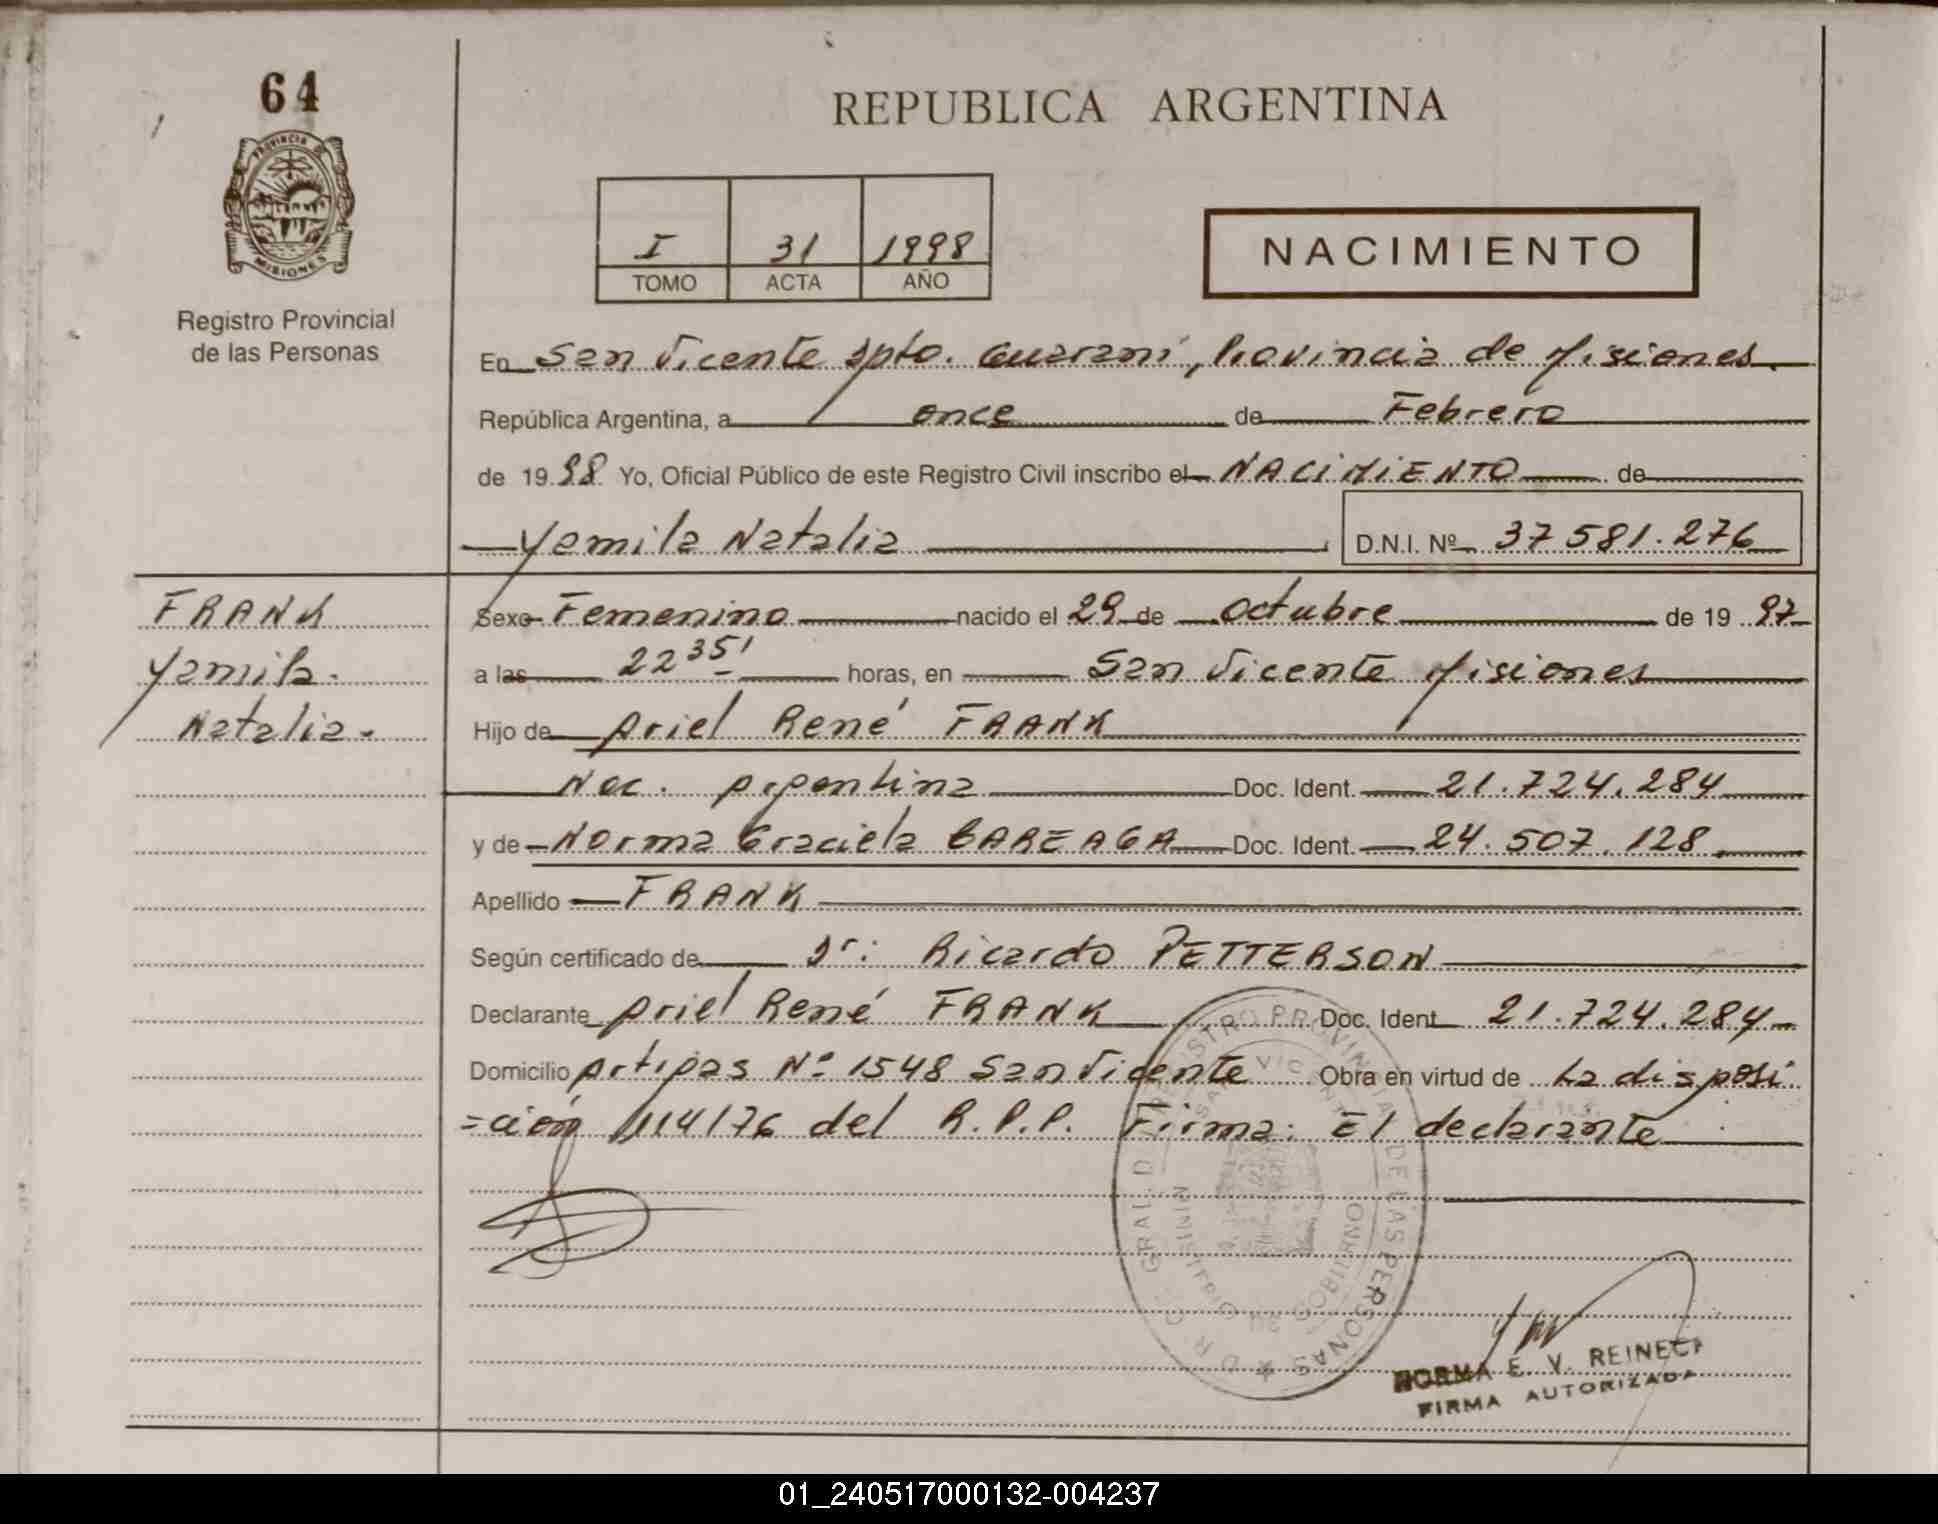 64
PROVINCIA DE
MISIONES
Registro Provincial
de las Personas
REPUBLICA ARGENTINA
I 31 1998
TOMO ACTA AÑO
NACIMIENTO
En San Vicente Dpto. Guaraní, Provincia de Misiones
República Argentina, a once de Febrero
de 1998 Yo, Oficial Público de este Registro Civil inscribo el NACIMIENTO de
Yamila Natalia D.N.I. Nº 37581.276
FRANK
Yamila
Natalia.
Sexo Femenino nacido el 29 de octubre de 1997
a las 22 35' horas, en San Vicente Misiones
Hijo de Ariel René FRANK
Nac. Argentina Doc. Ident. 21.724.284
y de Norma Graciela BAREAGA Doc. Ident. 24.507.128
Apellido FRANK
Según certificado de Dr: Ricardo PETTERSON
Declarante Ariel René FRANK Doc. Ident. 21.724.284
Domicilio Artigas Nº 1548 San Vicente Obra en virtud de La disposi
=ción 114/76 del R.P.P. Firma: El declarante
REGISTRO PROVINCIAL DE LAS PERSONAS
SAN VICENTE
MINISTERIO DE GOBIERNO
NORMA E. V. REINECK
FIRMA AUTORIZADA
01_240517000132-004237